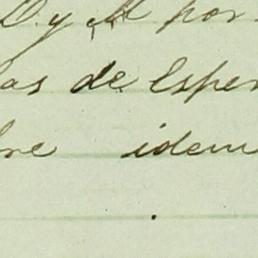 D. y M por
as de Esper
bre idem